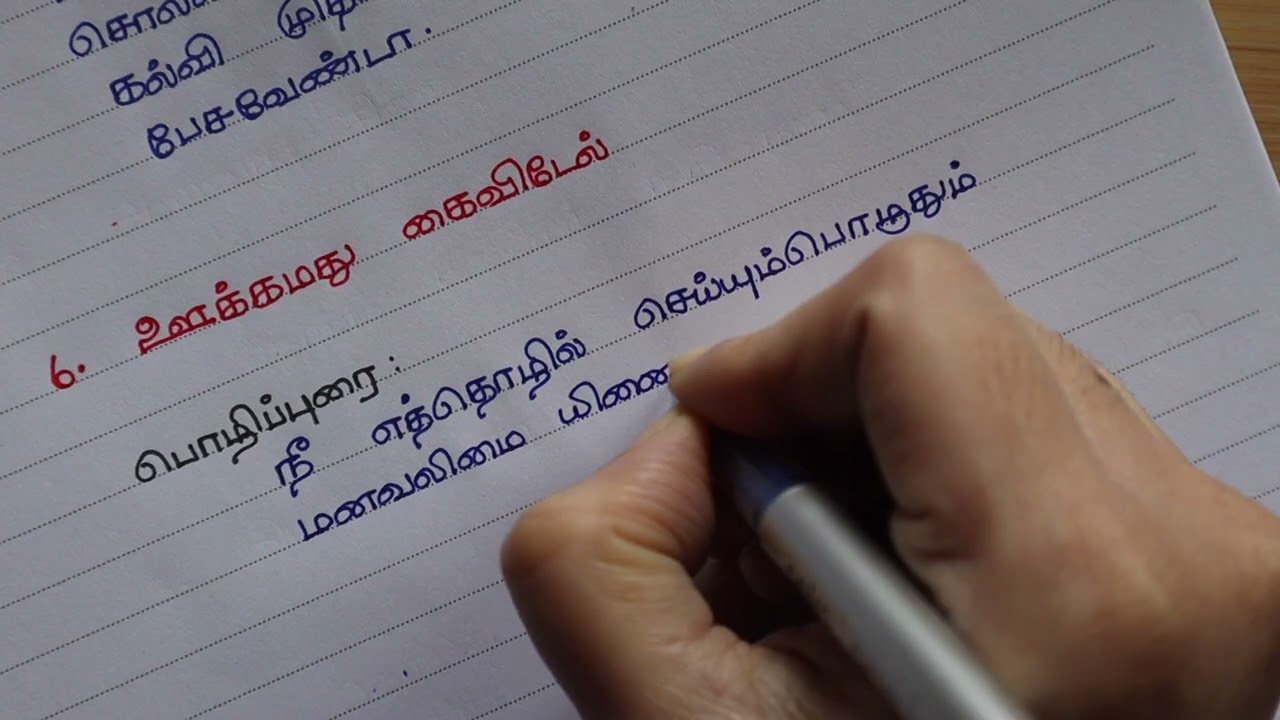 கல்வி
பேசவேண்டா.
6. ஊக்கமது கைவிடேல்
பொழிப்புரை :
நீ எத்தொழில் செய்யும்பொழுதும்
மனவலிமை யினை